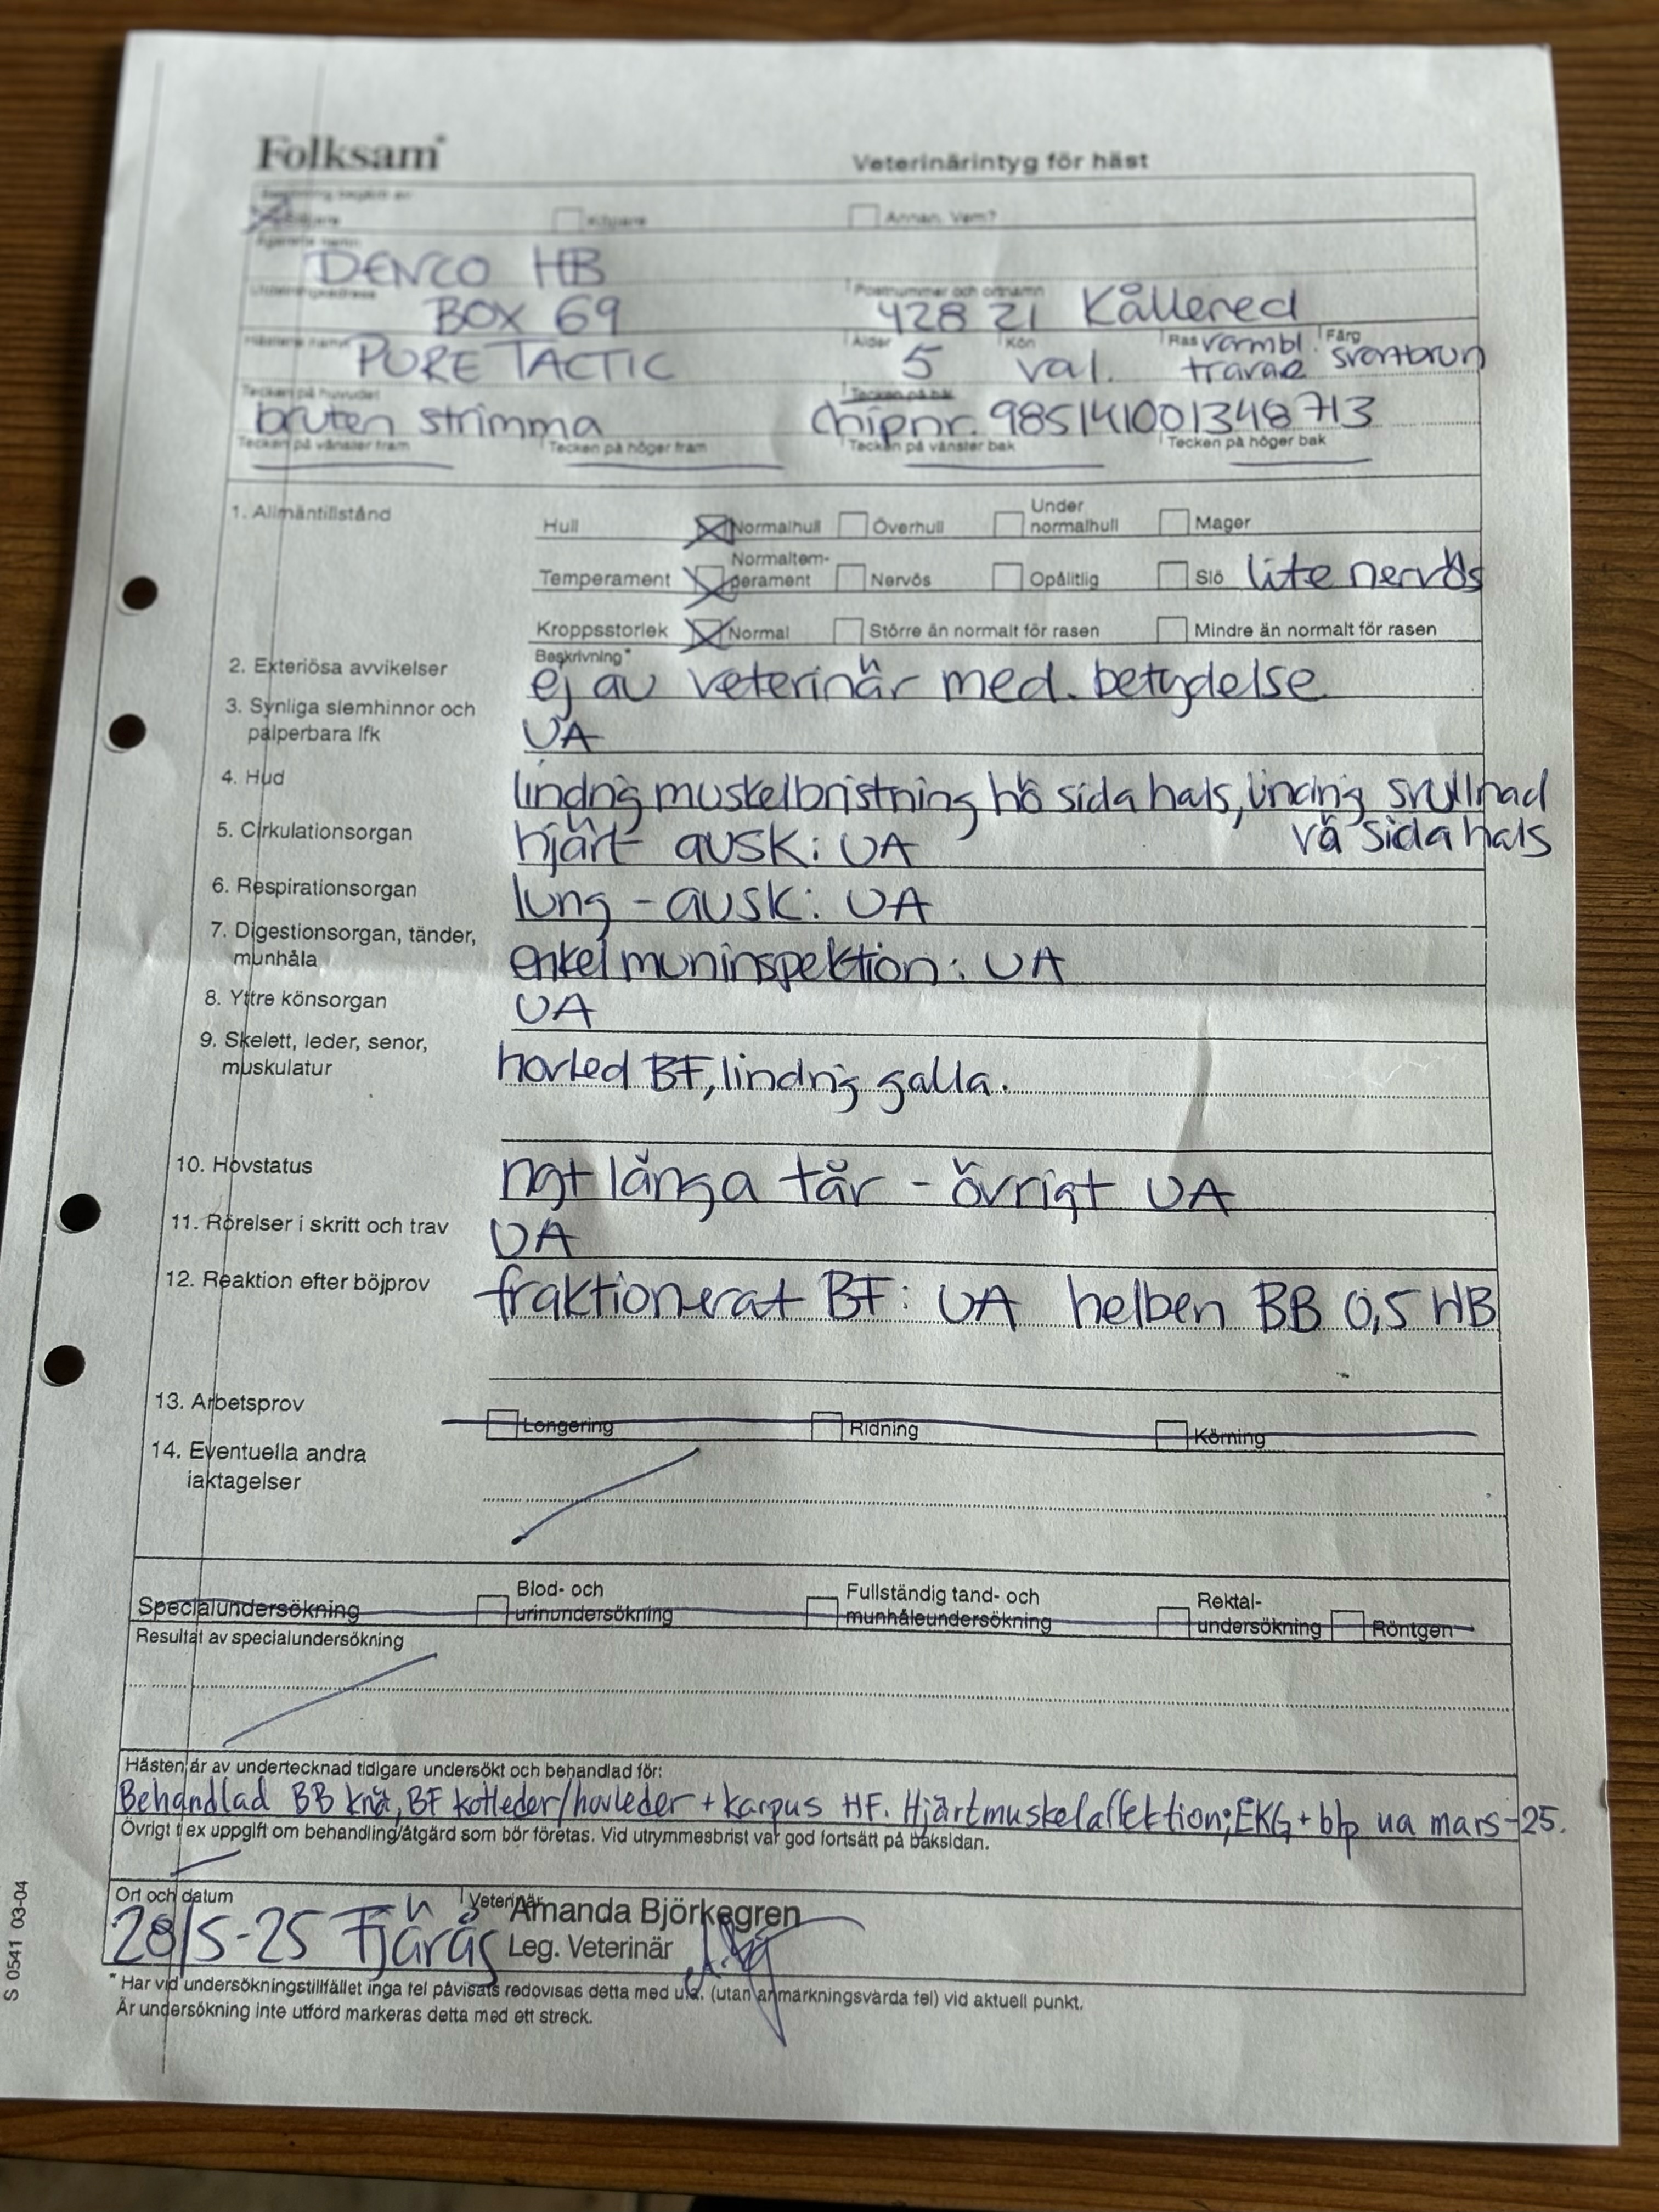 Folksam
Veterinärintyg för häst
Köpare Annan. Vem?
DENCO HB
Postnummer och ortnamn
BOX 69 428 21 Kållered
Hästens namn Ålder Kön Ras Färg
PURE TACTIC 5 val. varmbl. travare svartbrun
Tecken på huvudet Tecken på bål
bruten strimma Chipnr. 985141001348713
Tecken på vänster fram Tecken på höger fram Tecken på vänster bak Tecken på höger bak
1. Allmäntillstånd Hull Normalhull Överhull Under normalhull Mager
Temperament Normaltemperament Nervös Opålitlig Slö lite nervös
Kroppsstorlek Normal Större än normalt för rasen Mindre än normalt för rasen
Beskrivning*
2. Exteriösa avvikelser ej av veterinär med. betydelse
3. Synliga slemhinnor och
palperbara lfk UA
4. Hud lindrig muskelbristning hö sida hals, lindrig svullnad
vä sida hals
5. Cirkulationsorgan hjärt ausk: UA
6. Respirationsorgan lung - ausk: UA
7. Digestionsorgan, tänder,
munhåla enkel muninspektion: UA
8. Yttre könsorgan UA
9. Skelett, leder, senor,
muskulatur hovled BF, lindrig galla.
10. Hovstatus ngt långa tår - övrigt UA
11. Rörelser i skritt och trav UA
12. Reaktion efter böjprov fraktionerat BF: UA helben BB 0,5 HB
13. Arbetsprov Longering Ridning Körning
14. Eventuella andra
iakttagelser
Specialundersökning Blod- och urinundersökning Fullständig tand- och munhåleundersökning Rektalundersökning Röntgen
Resultat av specialundersökning
Hästen är av undertecknad tidigare undersökt och behandlad för:
Behandlad BB knä, BF kotleder/hovleder + karpus HF. Hjärtmuskelaffektion; EKG + blp ua mars-25.
Övrigt t ex uppgift om behandling/åtgärd som bör företas. Vid utrymmesbrist var god fortsätt på baksidan.
Ort och datum Veterinär
28/5-25 Fjärås Amanda Björkegren
Leg. Veterinär
* Har vid undersökningstillfället inga fel påvisats redovisas detta med u.a. (utan anmärkningsvärda fel) vid aktuell punkt.
Är undersökning inte utförd markeras detta med ett streck.
S 0541 03-04